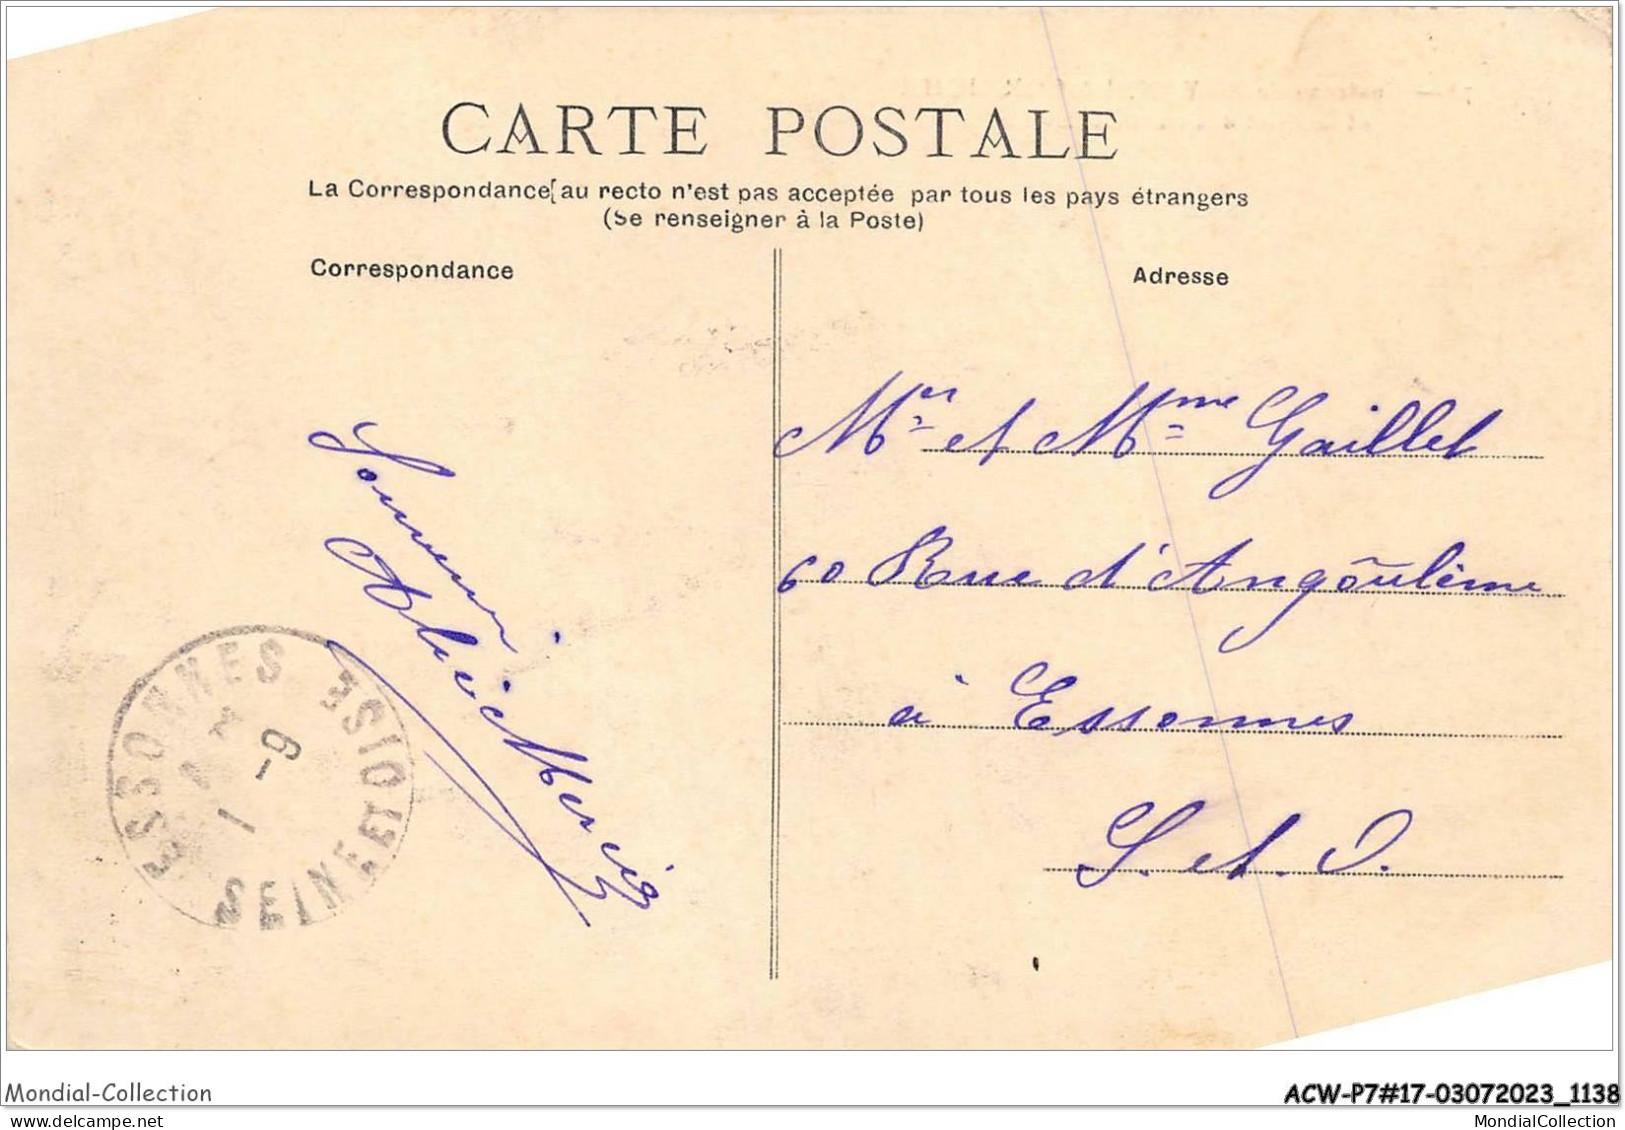 CARTE POSTALE
La Correspondance au recto n'est pas acceptée par tous les pays étrangers
(Se renseigner à la Poste)
Correspondance
Adresse
Souvenir
Mr et Mme Gaillet
60 Rue d'Angoulème
à Essonnes
S. et. O.
ESSONNES
SEINE ET OISE
1 -9
Mondial-Collection
ACW-P7#17-03072023_1138
MondialCollection